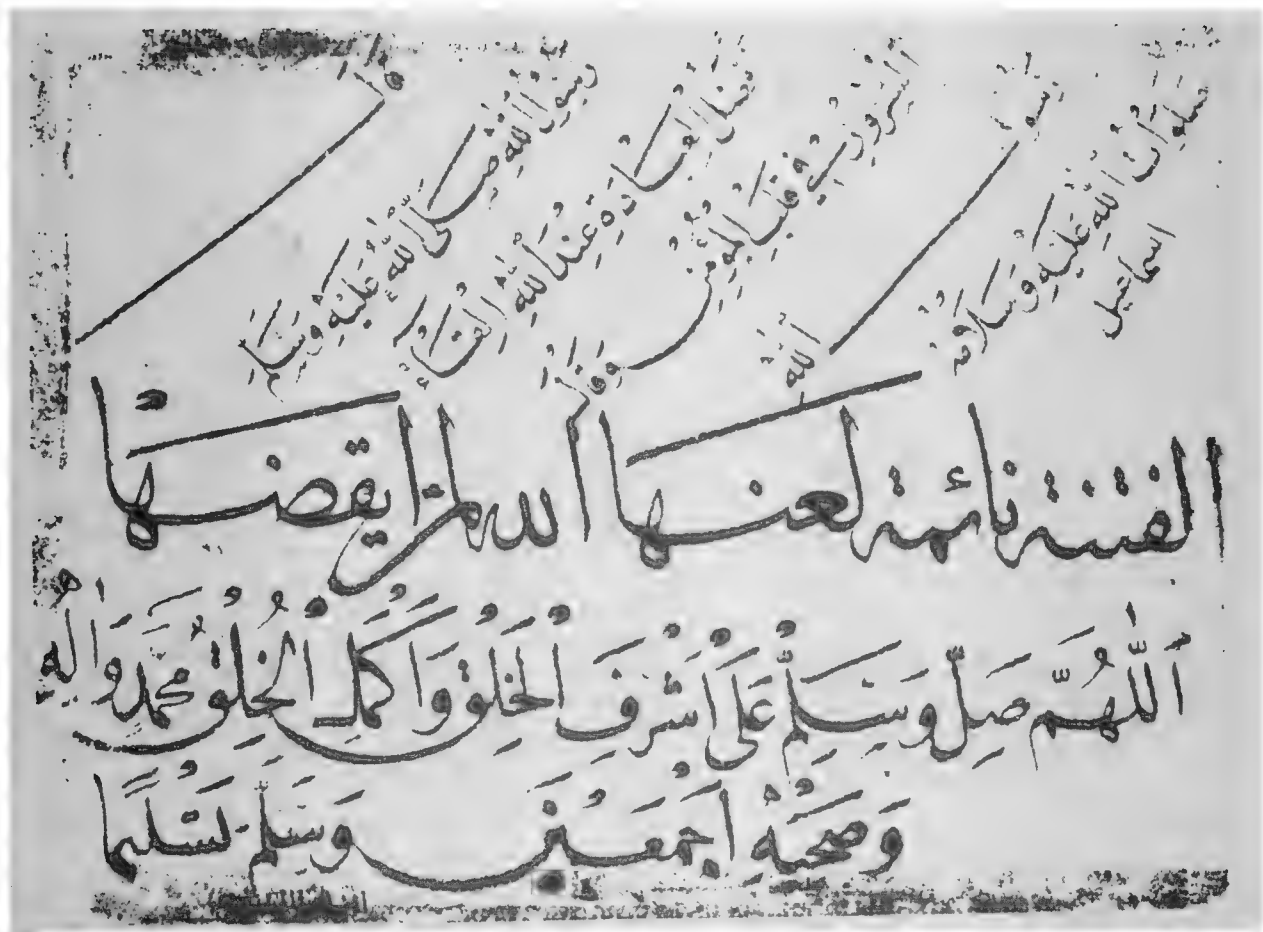 قال
رَسُولُ اللهِ صَلَّى اللهُ عَلَيْهِ وَسَلَّم
افضل العبادة عند الله القاء
السرور في قلب المؤمن
وقال
رسول
الله
صلوات الله عليه وسلامه
اسماعيل
الفتنة نائمة لعنها الله لمن ايقضها
اَللّٰهُمَّ صَلِّ وَسَلِّمْ عَلَى اَشْرَفِ الْخَلْقِ وَاَكْمَلِ الْخُلُقِ مُحَمَّدٍ وَاٰلِهِ
وَصَحْبِهِ اَجْمَعِينَ وَسَلِّمْ تَسْلِيمًا